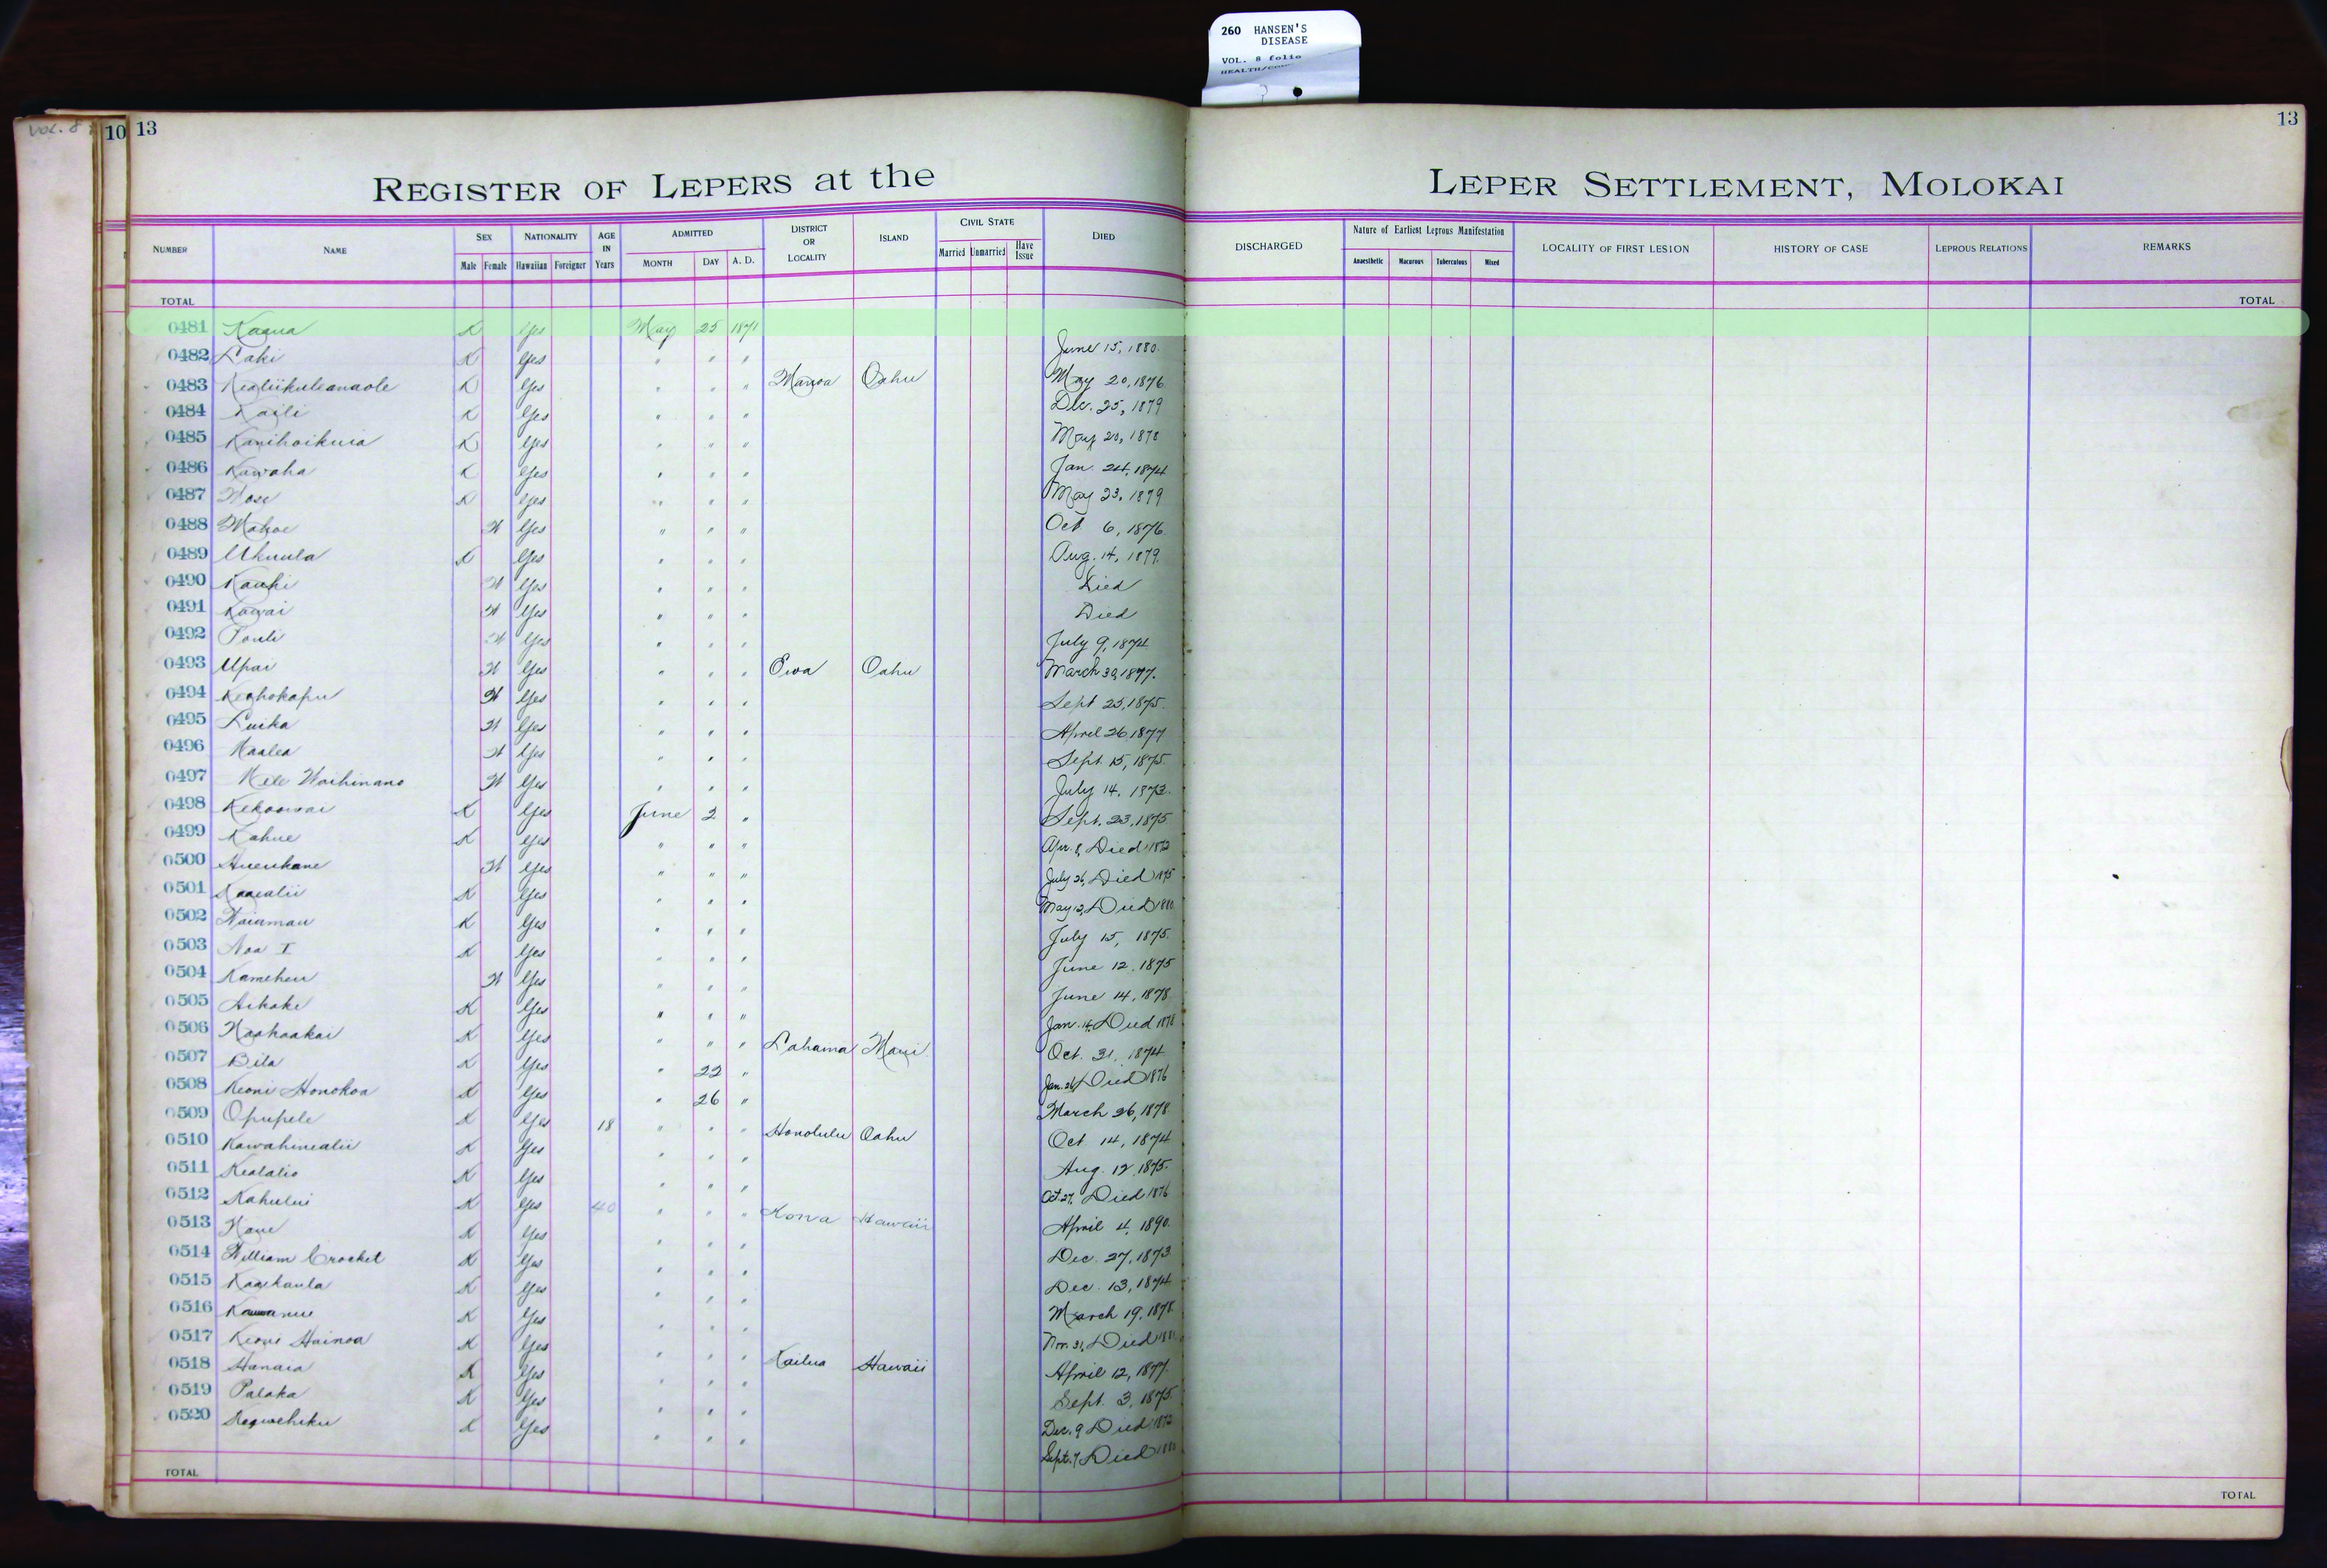 260 HANSEN'S
DISEASE
VOL. 8 folio
VOL. 8
10 13
13
REGISTER OF LEPERS at the LEPER SETTLEMENT, MOLOKAI
NUMBER NAME SEX NATIONALITY AGE IN Years ADMITTED DISTRICT OR LOCALITY ISLAND CIVIL STATE DIED DISCHARGED Nature of Earliest Leprous Manifestation LOCALITY OF FIRST LESION HISTORY OF CASE LEPROUS RELATIONS REMARKS
Male Female Hawaiian Foreigner MONTH DAY A. D. Married Unmarried Have Issue Anaesthetic Macurous Tuberculous Mixed
TOTAL TOTAL
0481 Kaaua K Yes May 25 1871 June 15, 1880.
0482 Laki K Yes " " " May 20, 1876
0483 Kealiikuleanaole K Yes " " " Manoa Oahu Dec. 25, 1879
0484 Kaili K Yes " " " May 20, 1878
0485 Kanihoikuia K Yes " " " Jan. 24, 1874
0486 Kawaha K Yes " " " May 23, 1879
0487 K Yes " " " Oct 6, 1876.
0488 Mahoe W Yes " " " Aug. 14, 1879.
0489 Ukuula K Yes " " " Died
0490 Kauhi W Yes " " " Died
0491 Kawai W Yes " " " July 9, 1874
0492 Pouli W Yes " " " March 30, 1877.
0493 Upai W Yes " " " Ewa Oahu Sept 25, 1875.
0494 Keohokapu W Yes " " " April 26 1877
0495 Luika W Yes " " " Sept. 15, 1875.
0496 Kaalea W Yes " " " July 14, 1873.
0497 Mele Waihinano W Yes " " " Sept. 23, 1875
0498 Kekoowai K Yes June 2 " Apr. 8, Died 1872
0499 Kahue K Yes " " " July 26, Died 1875
0500 Hueukane W Yes " " " May 12, Died 1880
0501 Kaaealii K Yes " " " July 15, 1875.
0502 Waiamau K Yes " " " June 12, 1875
0503 Noa I K Yes " " " June 14, 1878
0504 Kameheu W Yes " " " Jan. 14, Died 1878
0505 Aikake K Yes " " " Oct. 31, 1874
0506 Naahaakai K Yes " " " Lahaina Maui Jan. 26, Died 1876
0507 Bila K Yes " 22 " March 26, 1878
0508 Keoni Honokoa K Yes " 26 " Oct 14, 1874
0509 Opupele K Yes 18 " " " Honolulu Oahu Aug. 12, 1875.
0510 Kawahinealii K Yes " " " Oct. 27, Died 1876
0511 Kealalio K Yes " " " April 4, 1890.
0512 Kahului K Yes 40 " " " Kona Hawaii Dec. 27, 1873.
0513 K Yes " " " Dec. 13, 1874
0514 William Crocket K Yes " " " March 19, 1878
0515 Kaaikaula K Yes " " " Nov. 31, Died
0516 K Yes " " " April 12, 1877.
0517 Keoni Hainoa K Yes " " " Sept. 3, 1875.
0518 Hanaia K Yes " " " Kailua Hawaii Dec. 9 Died 1872
0519 Palaka K Yes " " " Sept. 7, Died 1880
0520 K Yes " " "
TOTAL TOTAL